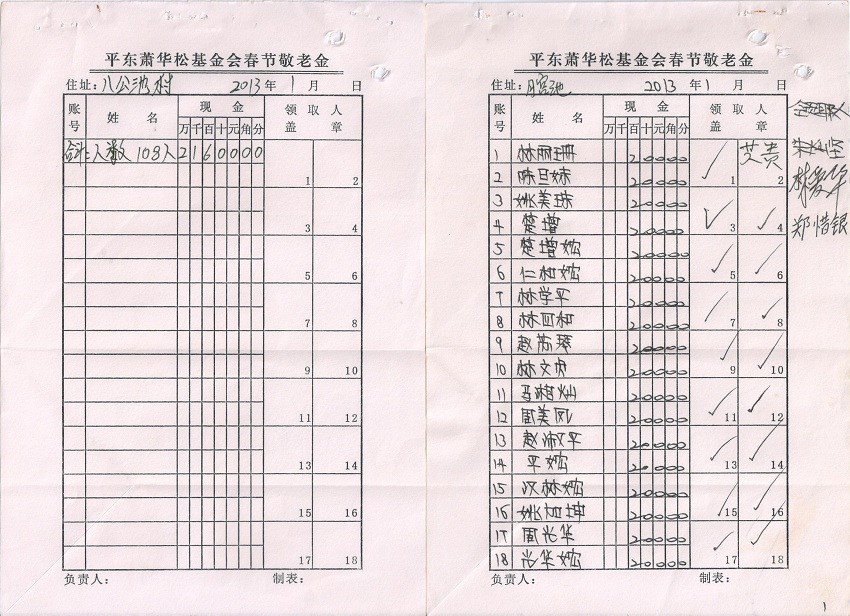 平东萧华松基金会春节敬老金
住址：八公池村 2013年 1月 日
账号 姓名 现金 领取人盖章
万 千 百 十 元 角 分
合计：人数 108人 2 1 6 0 0 0 0
1 2
3 4
5 6
7 8
9 10
11 12
13 14
15 16
17 18
负责人： 制表：
平东萧华松基金会春节敬老金
住址： 2013年 1月 日
账号 姓名 现金 领取人盖章
万 千 百 十 元 角 分
1 林丽珊 20000 1
2 陈旦妹 20000 2
3 姚美珠 20000 3
4 楚增 20000 4
郑惜银
5 楚增 20000 5
6 仁和 20000 6
7 林学平 20000 7
8 林四和 20000 8
9 赵 20000 9
10 林文虎 20000 10
11 20000 11
12 周美凤 20000 12
13 赵淑平 20000 13
14 平 20000 14
15 汉林 20000 15
16 姚 坤 20000 16
17 周光华 20000 17
18 光华 20000 18
负责人： 制表：
1